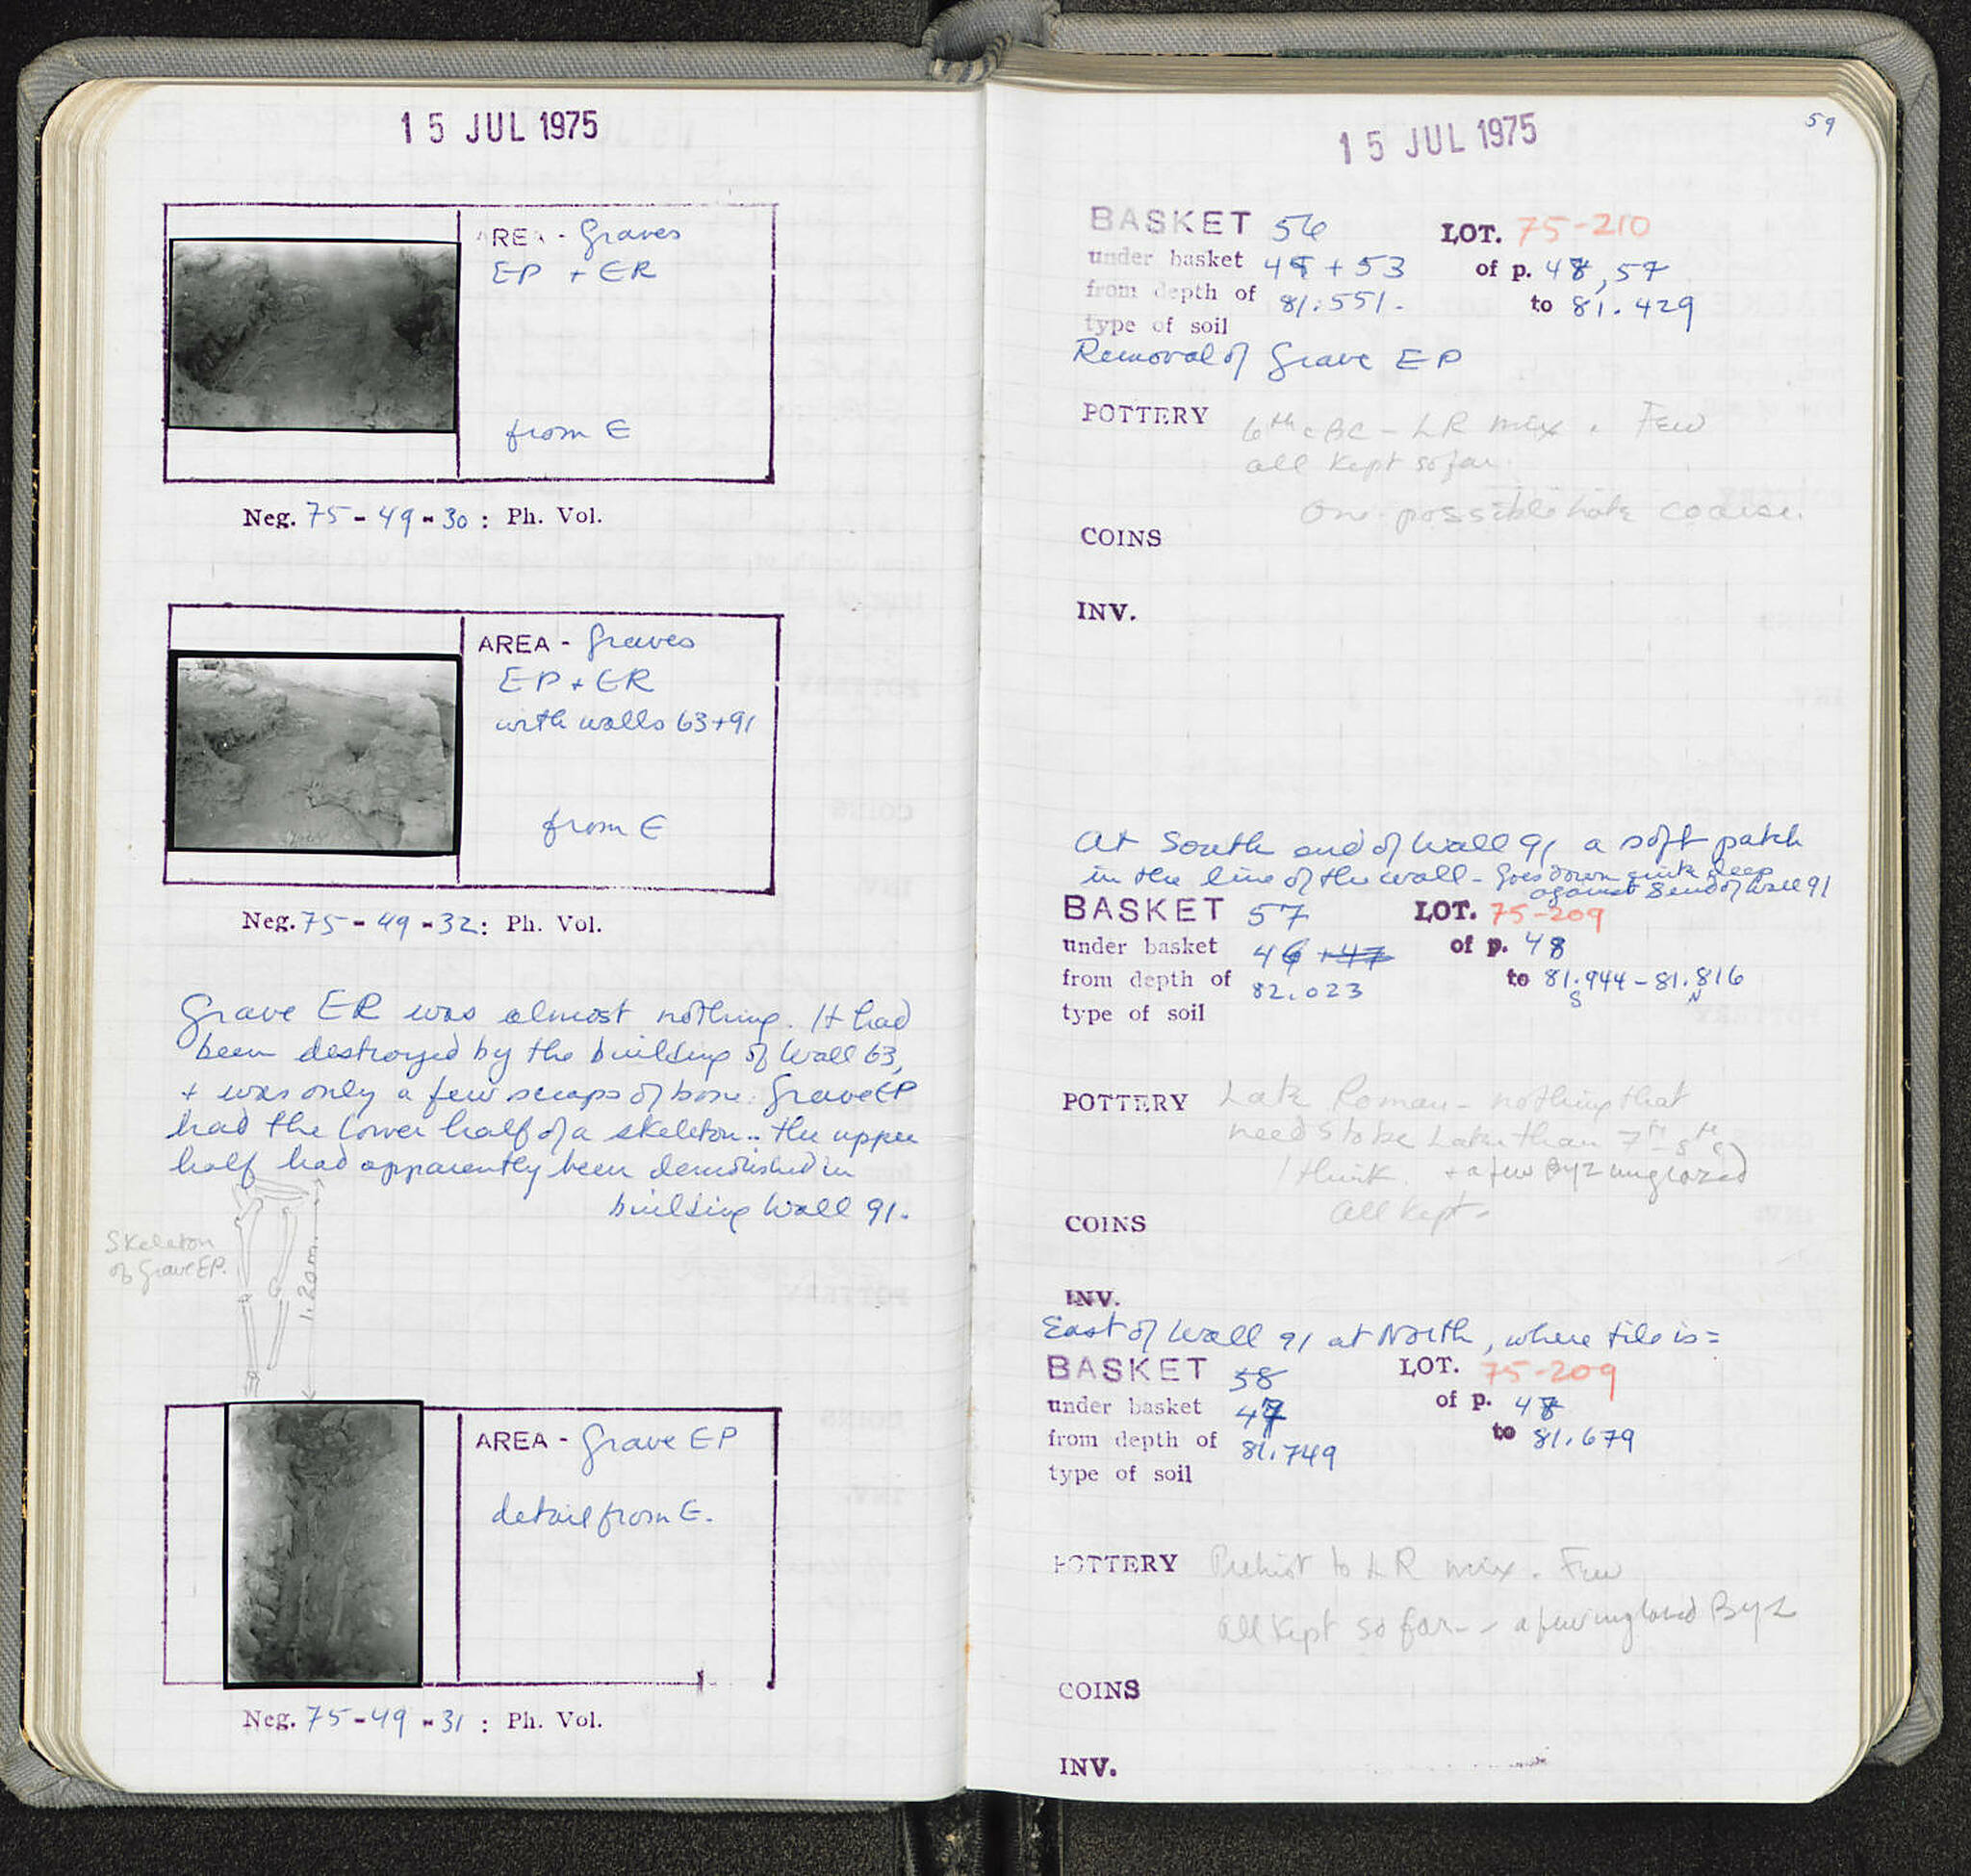 15 JUL 1975
AREA - Graves
EP + ER
from E
Neg. 75-49-30 : Ph. Vol.
AREA - Graves
EP + ER
with walls 63+91
from E
Neg. 75-49-32 : Ph. Vol.
Grave ER was almost nothing. It had
been destroyed by the building of Wall 63,
+ was only a few scraps of bone. Grave EP
had the lower half of a skeleton.. the upper
half had apparently been demolished in
building Wall 91.
Skeleton
of Grave EP.
1.20 m.
AREA - Grave EP
detail from E.
Neg. 75-49-31 : Ph. Vol.
59
15 JUL 1975
BASKET 56 LOT. 75-210
under basket + 53 of p. 57
from depth of 81.551. to 81.429
type of soil
Removal of Grave EP
POTTERY 6th c BC - LR mix. Few
all kept so far.
One possible late coarse.
COINS
INV.
At South end of Wall 91 a soft patch
in the line of the wall - Goes down quite deep
against S end of Wall 91
BASKET 57 LOT. 75-209
under basket 46 +47 of p. 48
from depth of 82.023 to 81.944 - 81.816
S N
type of soil
POTTERY Late Roman - nothing that
needs to be later than 7th-8th c
I think. + a few Byz unglazed
All kept.
COINS
INV.
East of Wall 91 at North, where tile is =
BASKET 58 LOT. 75-209
under basket 47 of p. 48
from depth of 81.749 to 81.679
type of soil
POTTERY Prehist to LR mix. Few
all kept so far - a few unglazed Byz
COINS
INV.